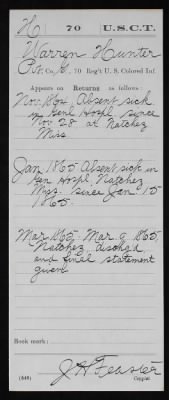 H 70 U.S.C.T.
Warren Hunter
Pvt. Co. G, 70 Reg't U. S. Colored Inf.
Appears on Returns as follows:
Nov. 1864 Absent sick
in Genl Hospl. since
Nov 28 at Natchez
Miss
Jan 1865 Absent sick in
Gen Hospl. Natchez
Miss. since Jan 15
1865.
Mar 1865. Mar 9 1865,
Natchez disch'd
and final statement
given
Book mark:
J H Feaster
(546) Copyist.